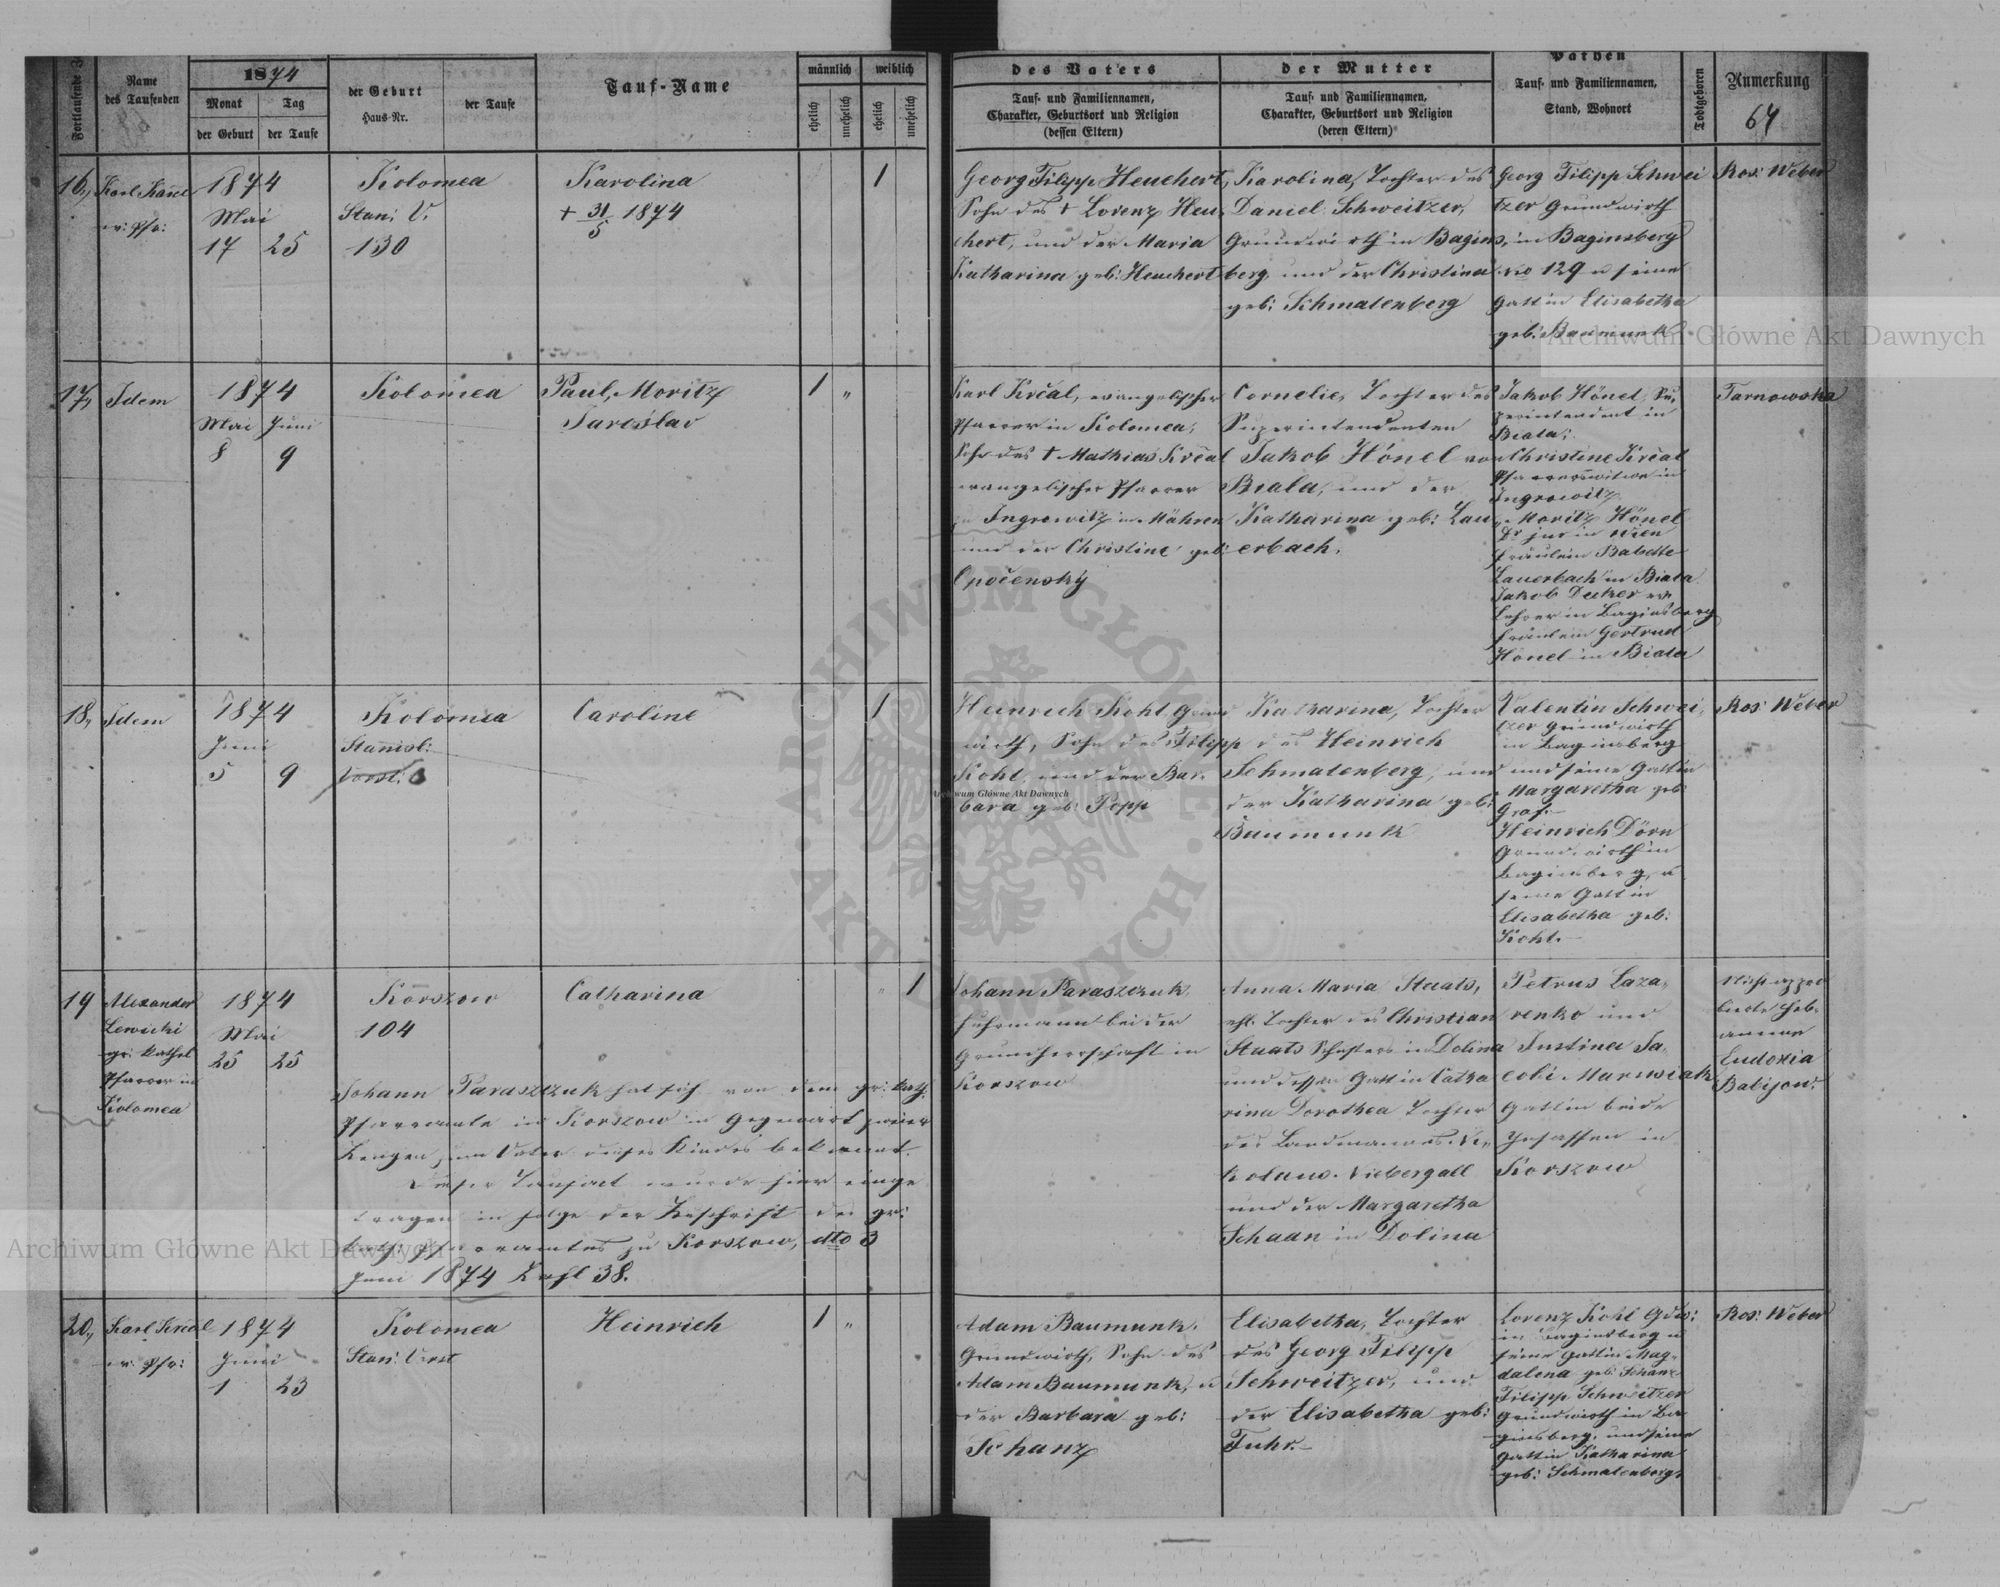 Fortlaufende Z
Name
des Taufenden
1874
Monat
Tag
der Geburt
der Taufe
der Geburt
Haus-Nr.
der Taufe
Tauf-Name
männlich
weiblich
ehelich
unehelich
ehelich
unehelich
des Vaters
Tauf- und Familiennamen,
Charakter, Geburtsort und Religion
(dessen Eltern)
der Mutter
Tauf- und Familiennamen,
Charakter, Geburtsort und Religion
(deren Eltern)
Pathen
Tauf- und Familiennamen,
Stand, Wohnort
Todtgeboren
Anmerkung
64
16,
ev: Pfr:
1874
Mai
17 25
Kolomea
Stan: V.
130
Karolina
+ 31/5 1874
1
Georg Filipp Heuchert,
Sohn des + Lorenz Heu-
chert, und der Maria
Katharina geb: Heuchert
Karolina, Tochter des
Daniel Schweitzer,
Grundwirth in Bagins-
berg und der Christina
geb: Schmalenberg
Georg Filipp Schwei
tzer Grundwirth
in Baginsberg
Nro 129 u seine
Gattin Elisabetha
geb: Baumunk
Ros: Weber
17,
Idem
1874
Mai Juni
8 9
Kolomea
Paul, Moritz
Jaroslav
1 "
Karl Krčal, evangelischer
Pfarrer in Kolomea,
Sohn des + Mathias Krčal
evangelischer Pfarrer
zu Ingrowitz in Mähren
und der Christine geb:
Opočenský
Cornelie, Tochter des
Superintendenten
Jakob Hönel von
Biala, und der
Katharina geb: Lau-
erbach.
Jakob Hönel, Su-
perintendent in
Biala;
Christine Krčal
Pfarrerswitwe in
Ingrowitz
Moritz Hönel
Dr jur in Wien
Fräulein Babette
Lauerbach in Biala
Jakob Decker ev.
Lehrer in Baginsberg
Fräulein Gertrud
Hönel in Biala
Tarnowska
18,
Idem
1874
Juni
5 9
Kolomea
Stanisl:
Vorst:
Caroline
1
Heinrich Kohl, Grund
wirth, Sohn des Filipp
Kohl, und der Bar-
bara geb: Popp
Katharina, Tochter
des Heinrich
Schmalenberg, und
der Katharina geb:
Baumunk
Valentin Schwei-
tzer Grundwirth
in Baginsberg
und seine Gattin
Margaretha geb:
Graf.
Heinrich Dörn
Grundwirth in
Baginsberg, u
seine Gattin
Elisabetha geb:
Kohl.
Ros: Weber
19
Alexander
Lewicki
gr: kathol
Pfarrer in
Kolomea
1874
Mai
25 25
Korszow
104
Catharina
" 1
Johann Paraszczuk hat sich von dem gr: kath.
Pfarramte in Korszow in Gegenwart zweier
Zeugen zum Vater dieses Kindes bekannt.
Dieser Taufact wurde hier einge
tragen in Folge der Zuschrift des gr:
kath: Pfarramtes zu Korszow, dto 3
Juni 1874 Zahl 38.
Johann Paraszczuk,
Fuhrmann bei der
Grundherrschaft in
Korszow
Anna Maria Staats,
ehl. Tochter des Christian
Staats Schusters in Dolina
und dessen Gattin Catha
rina Dorothea Tochter
des Landmannes Ni-
kolaus Niebergall
und der Margaretha
Schaan in Dolina
Petrus Laza-
renko und
Justina Ja-
cobi Marusiak
Gattin beide
Insassen in
Korszow
Nicht appro
birte Heb-
amme
Eudoxia
Babijow.
20,
Karl Krčal
ev: Pfr:
1874
Juni
1 23
Kolomea
Stan: Vorst
Heinrich
1 "
Adam Baumunk,
Grundwirth, Sohn des
Adam Baumunk, u
der Barbara geb:
Schanz
Elisabetha, Tochter
des Georg Filipp
Schweitzer, und
der Elisabetha geb:
Fuhr.
Lorenz Kohl
in Baginsberg u
seine Gattin Mag-
dalena geb: Schanz
Filipp Schweitzer
Grundwirth in Ba
ginsberg, und seine
Gattin Katharina
geb: Schmalenberg.
Ros: Weber
Archiwum Główne Akt Dawnych
Archiwum Główne Akt Dawnych
Archiwum Główne Akt Dawnych
ARCHIWUM GŁÓWNE AKT DAWNYCH